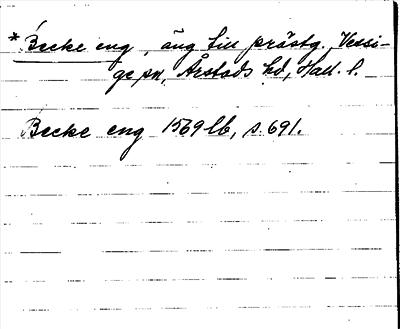 * Becke eng, äng till prästg. Vessi-
ge sn, Årstads hd, Hall. l.
Becke eng 1569 lb, s. 691.